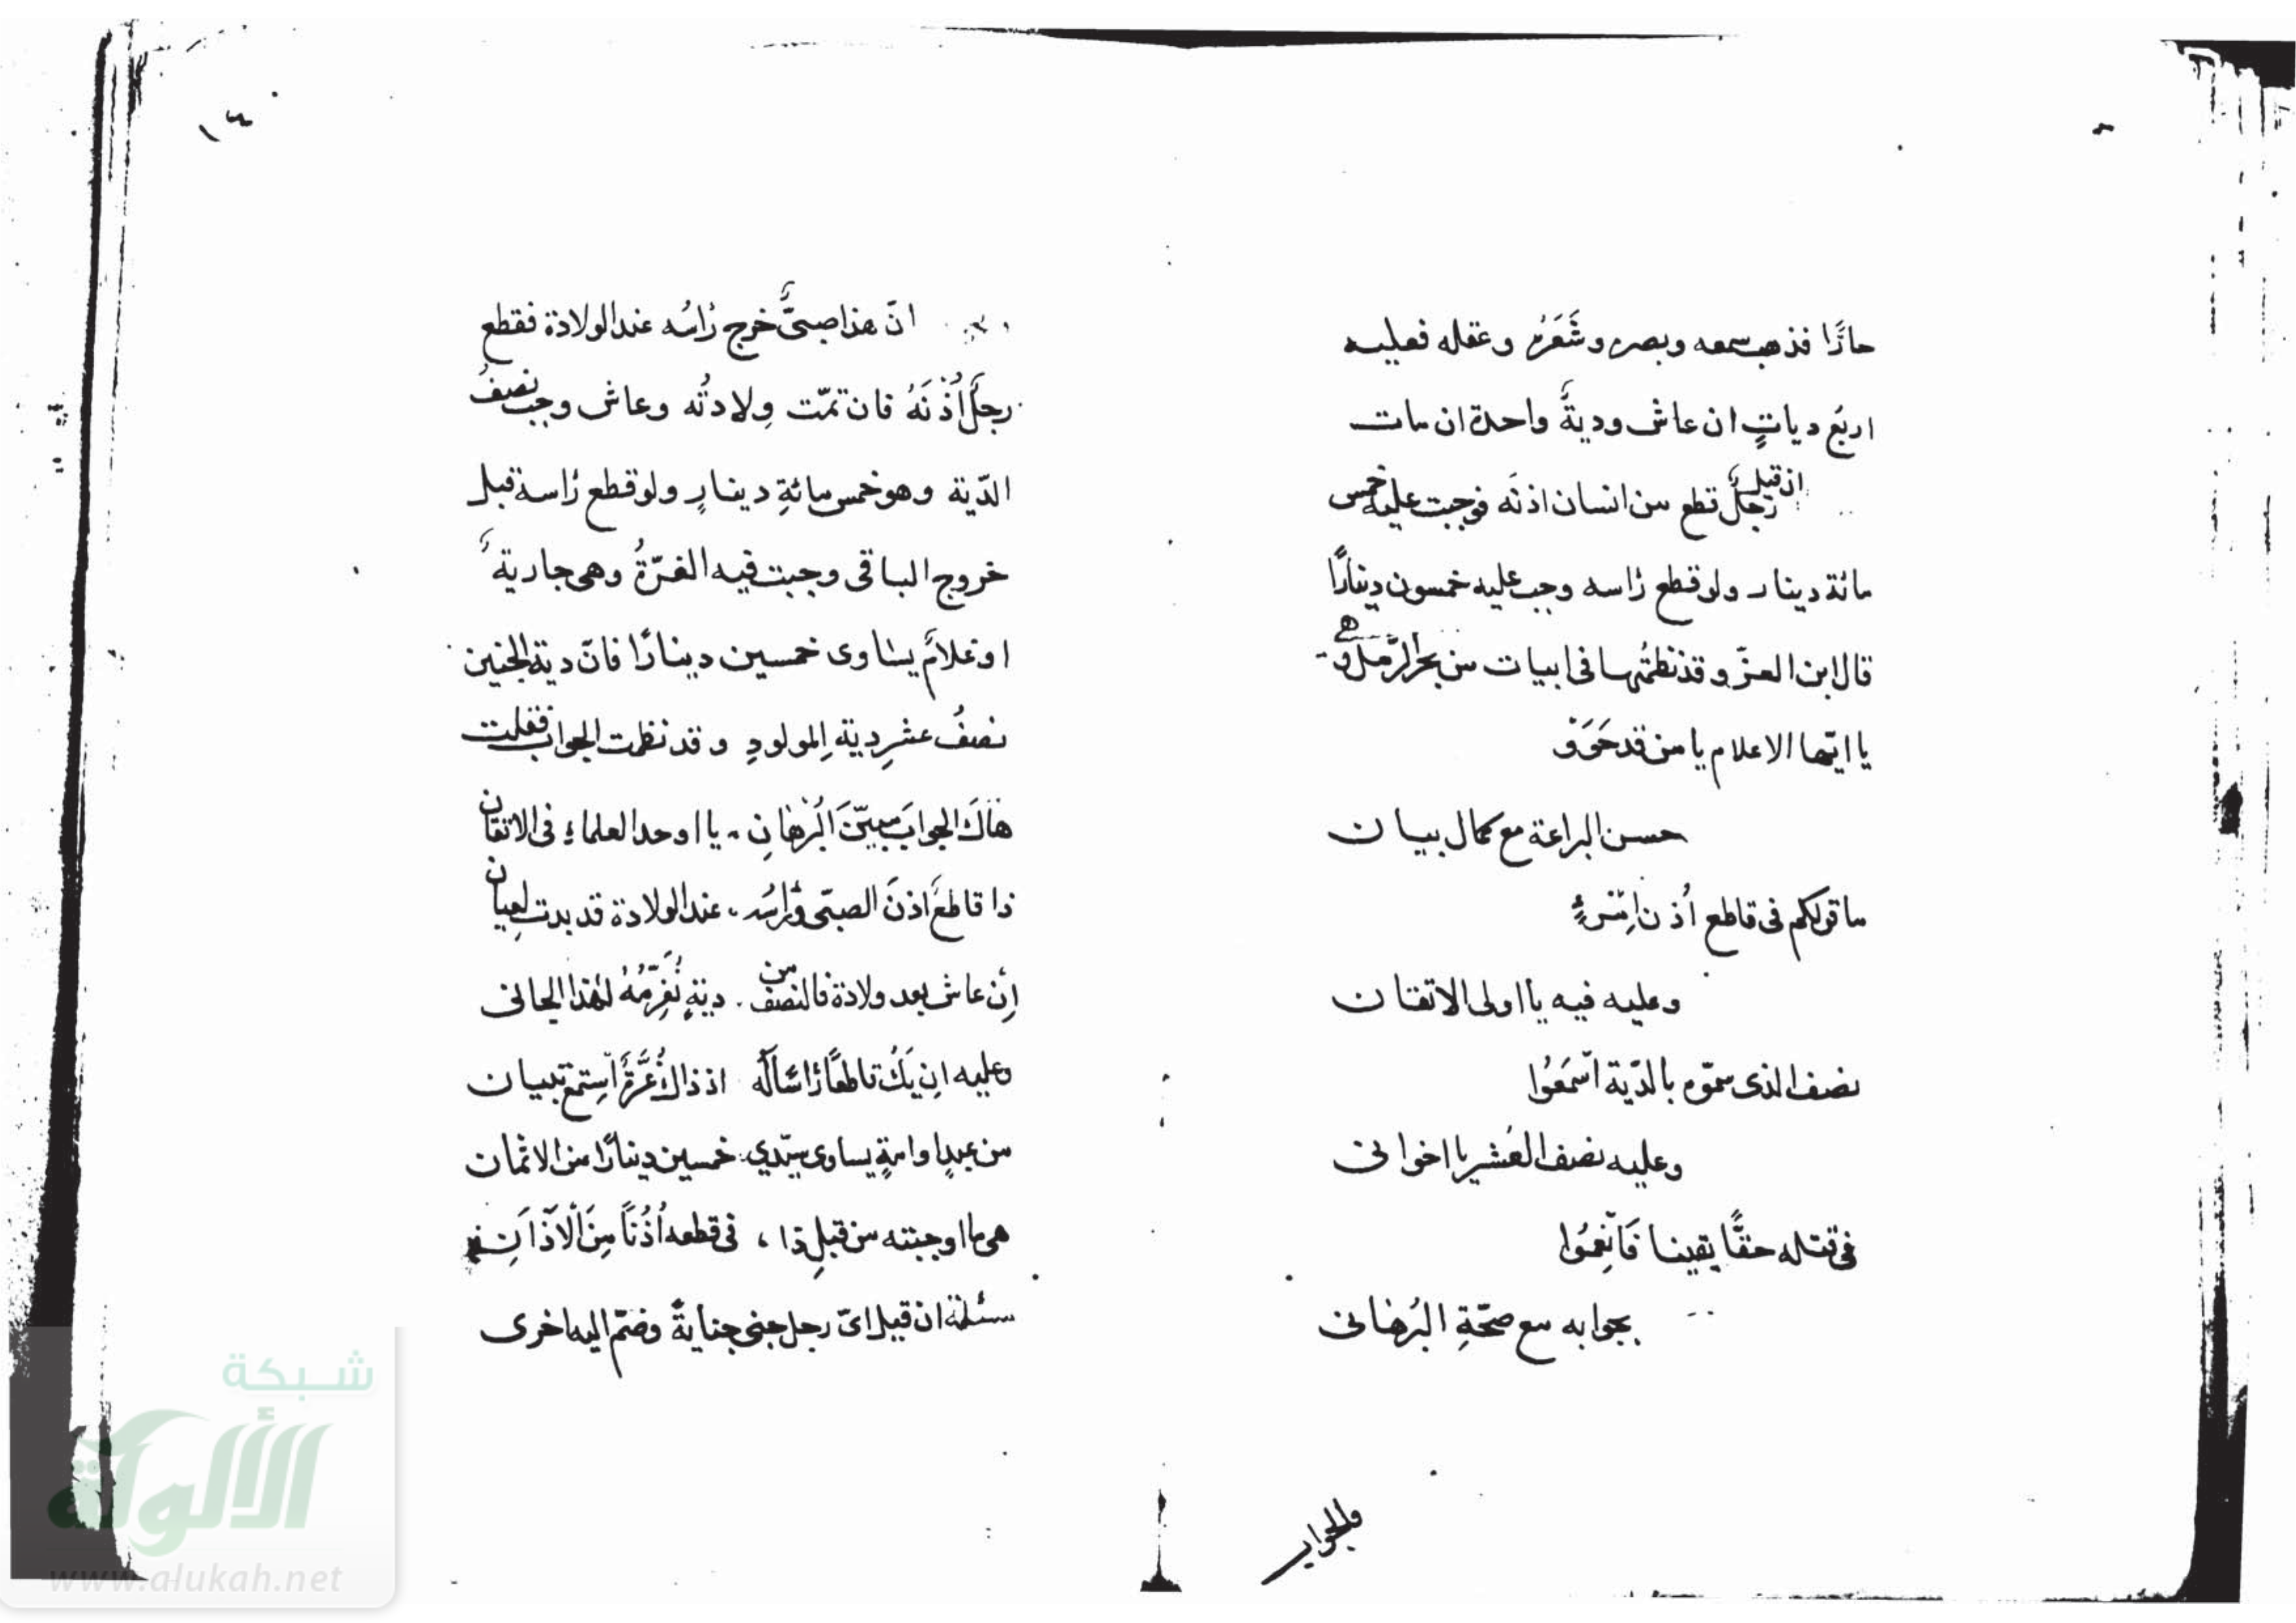 حارًّا فذهب سمعه وبصره وشَعَرُه وعقله فعليه
اربَع دياتٍ ان عاش وديةٌ واحدة ان مات
ان قيل رجلٌ قطع من انسان اذنَه فوجبت عليه خمس
مائة دينار ولو قطع رٔاسه وجب عليه خمسون دينارًا
قال ابن العزّ وقد نظمتُها فى ابيات من بحر الرّمل وهى
يا ايّها الاعلام يا من قد حَوَوْ
حسن البراعة مع كمال بيان
ما قولكم فى قاطع اُذن امْرءٍ
وعليه فيه يا اولى الاتقان
نصف الذى سمّوه بالدّية اسْمَعُوا
وعليه نصف العُشر يا اخوانى
فى قتله حقًّا يقينا فَانْعِمُوا
بجوابه مع صحّةِ البُرهانى
والجواب
١٤
انّ هذا صبىٌّ خرج رٔاسُه عند الولادة فقطع
رجلٌ اُذْنَهُ فان تمّت وِلادتُه وعاش وجب نصفُ
الدّية وهو خمس مائةِ دينارٍ ولو قطع رٔاسه قبل
خروج الباقى وجبت فيه الغُرّةُ وهى جاريةٌ
او غلامٌ يساوى خمسين دينارًا فانّ دية الجنين
نصفُ عشرِ ديةِ المولودِ وقد نظمت الجواب فقلت
هَاكَ الجوابَ مبيّنَ البُرْهَانِ ، يا اوحد العلماءِ فى الاتقان
ذا قاطعٌ اذنَ الصبّى ورٔاسُه ، عند الولادة قد بدت لعِيان
اِنْ عاش بعد ولادة فالنصف من ، ديةٍ نُغَرِّمُهُ لهٰذا الجانى
وعليه ان يَكُ قاطعًا رٔاسًا لَه اذ ذاك غُرَّةٌ اسْتمعْ تبيان
من عبدٍ او امةٍ يساوى سيّدي خمسين دينارًا من الاثمان
هى ما اوجبته من قبلِ ذا ، فى قطعه اُذُنًا مِنَ الْاٰذَانِ
مسئلة ان قيل اىّ رجل جنى جنايةً وضمّ اليه اخرى
شبكة
الألوكة
www.alukah.net